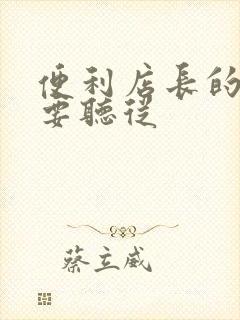 便利店長的
要聽從
蔡立威